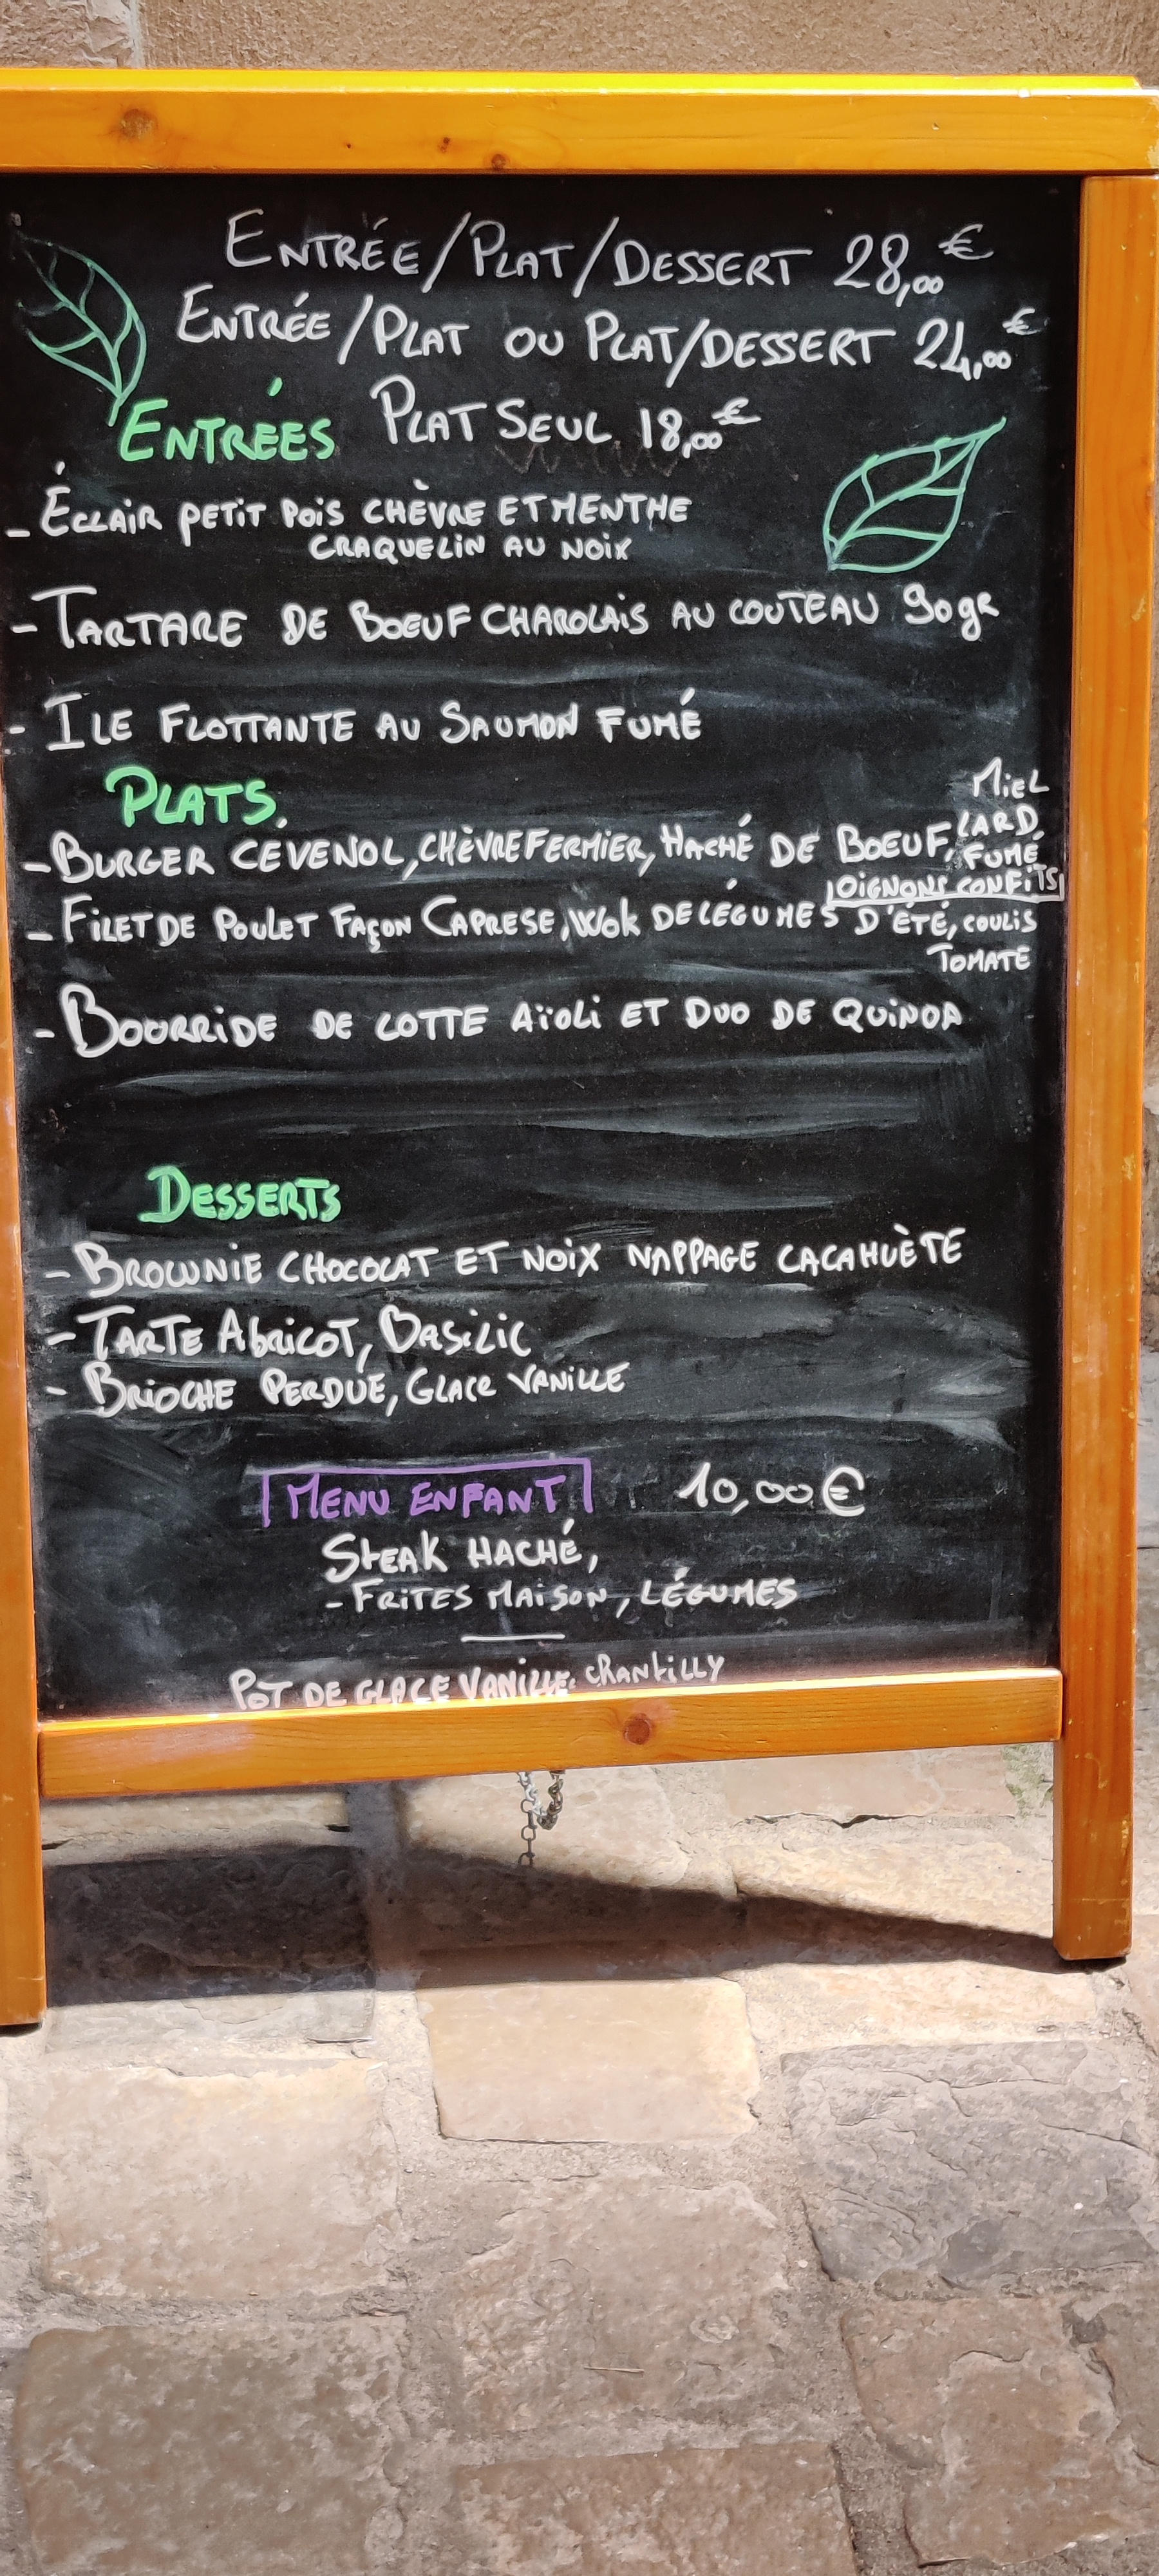 ENTRÉE/PLAT/DESSERT 28,00€
ENTRÉE/PLAT OU PLAT/DESSERT 24,00€
ENTRÉES PLAT SEUL 18,00€
- ÉCLAIR PETIT POIS CHÈVRE ET MENTHE
CRAQUELIN AU NOIX
- TARTARE DE BOEUF CHAROLAIS AU COUTEAU 90gR
- ILE FLOTTANTE AU SAUMON FUMÉ
PLATS.
- BURGER CÉVENOL, CHÈVRE FERMIER, HACHÉ DE BOEUF, MIEL
LARD
FUMÉ
OIGNONS CONFITS
- FILET DE POULET FAÇON CAPRESE, WOK DE LÉGUMES D'ÉTÉ, COULIS
TOMATE
- BOURRIDE DE LOTTE AÏOLI ET DUO DE QUINOA
DESSERTS
- BROWNIE CHOCOLAT ET NOIX NAPPAGE CACAHUÈTE
- TARTE ABRICOT, BASILIC
- BRIOCHE PERDUE, GLACE VANILLE
MENU ENFANT 10,00€
STEAK HACHÉ,
- FRITES MAISON, LÉGUMES
POT DE GLACE VANILLE, CHANTILLY